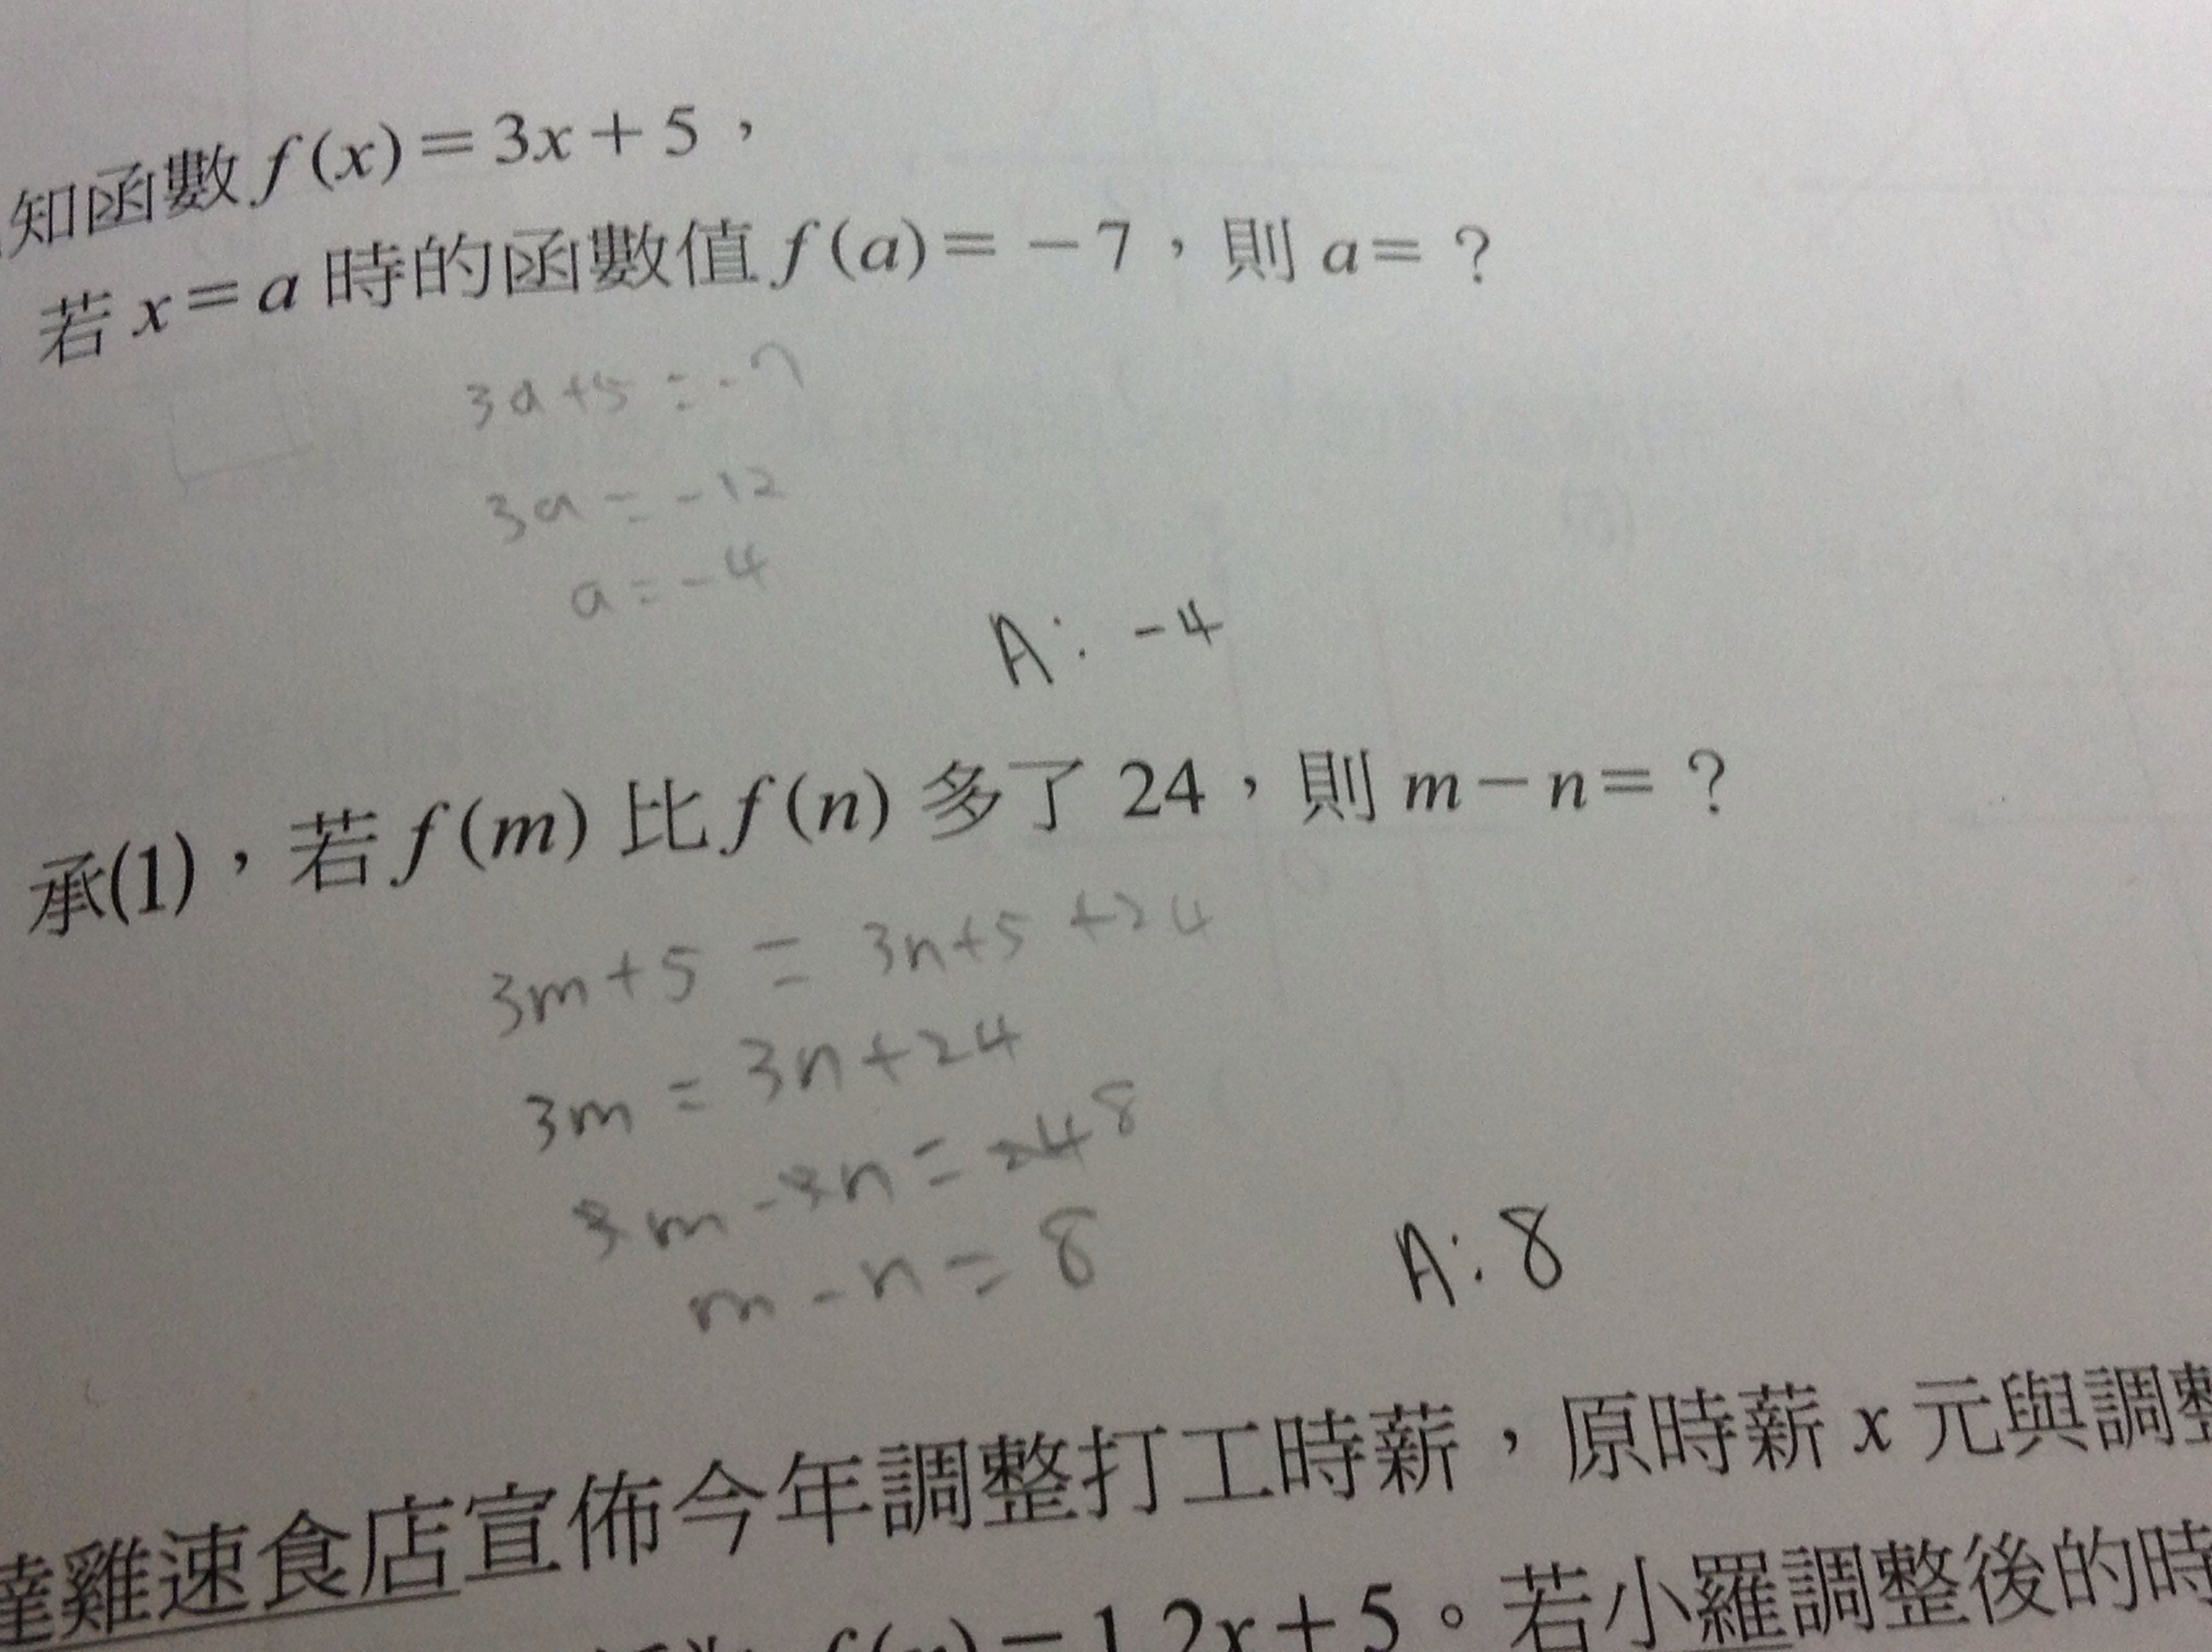 知函數 f(x)=3x+5，
若 x=a 時的函數值 f(a)=-7，則 a=？
3a+5=-7
3a=-12
a=-4
A: -4
承(1)，若 f(m) 比 f(n) 多了 24，則 m-n=？
3m+5=3n+5+24
3m=3n+24
3m-3n=24 8
m-n=8
A: 8
雞速食店宣佈今年調整打工時薪，原時薪 x 元與調整
f(x)=1.2x+5。若小羅調整後的時